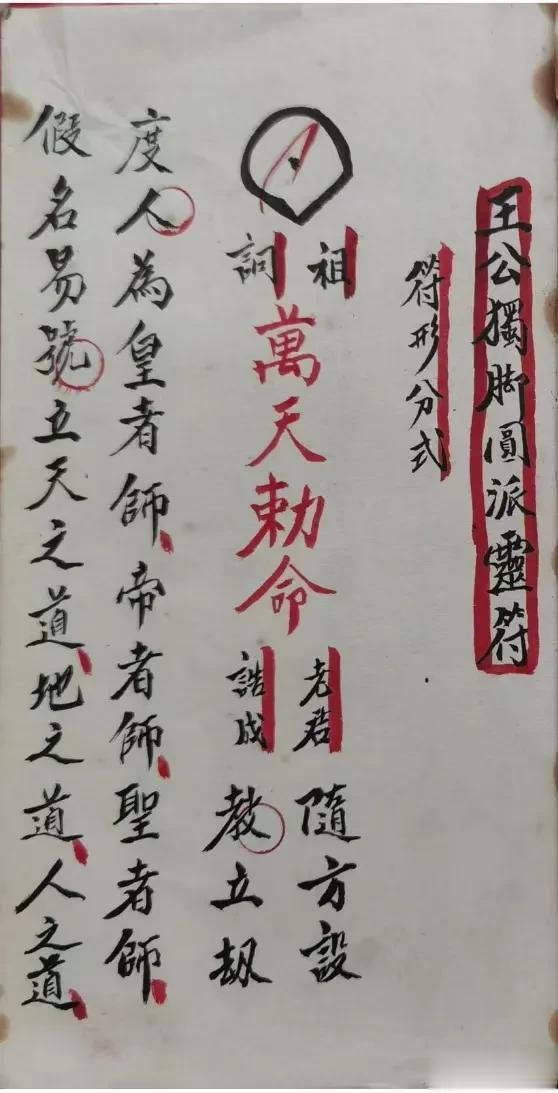 王公獨脚圓派靈符
符形分式
祖詞
萬天勅命
老君誥成
隨方設
教立刼
度人為皇者師帝者師聖者師
假名易號立天之道地之道人之道